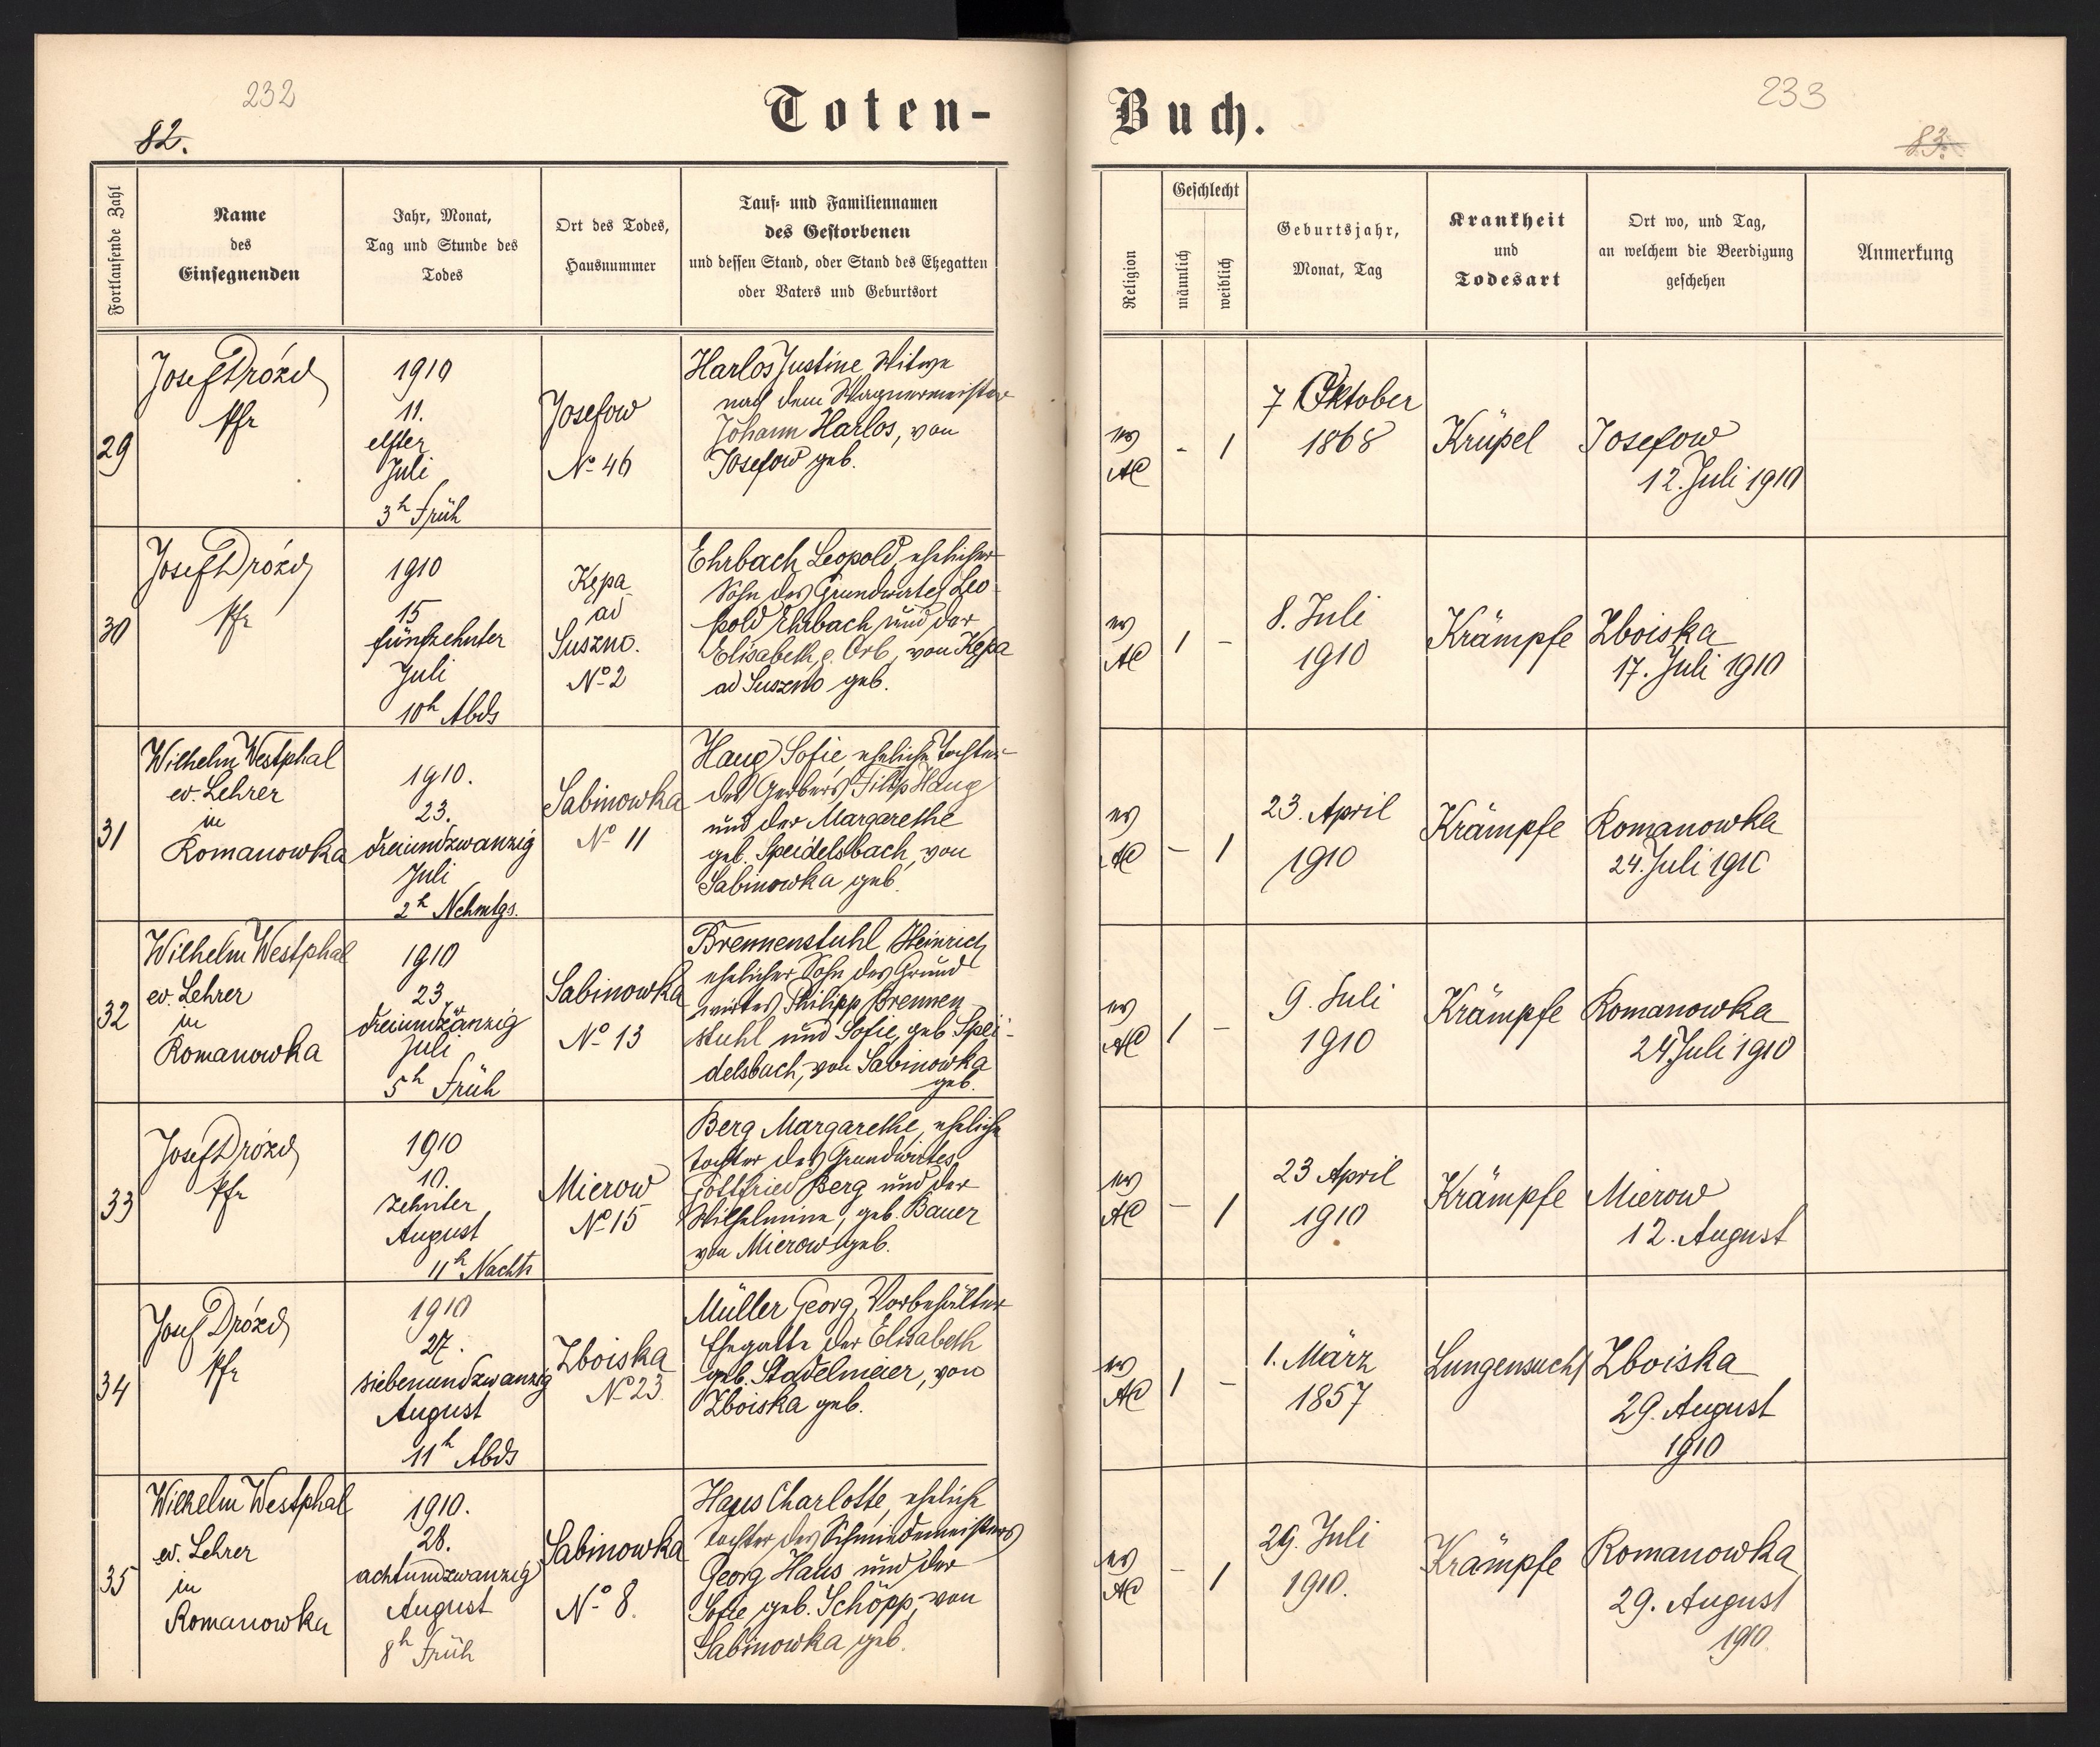 232
82.
Toten-
Fortlaufende Zahl
Name
des
Einsegnenden
Jahr, Monat,
Tag und Stunde des
Todes
Ort des Todes,
Hausnummer
Tauf- und Familiennamen
des Gestorbenen
und dessen Stand, oder Stand des Ehegatten
oder Vaters und Geburtsort
29
Josef Drózd
Pfr
1910
11.
elfter
Juli
3h Früh
Josefow
No 46
Harlos Justine Witwe
nach dem Wagnermeister
Johann Harlos, von
Josefow geb.
30
Josef Drozd
Pfr
1910
15
fünfzehnter
Juli
10h Abds
Kępa
ad
Suszno.
No 2
Ehrbach Leopold, ehelicher
Sohn des Grundwirtes Leo-
pold Ehrbach und der
Elisabeth g. Orb, von Kępa
ad Suszno geb.
31
Wilhelm Westphal
ev. Lehrer
in
Romanowka
1910.
23.
dreiundzwanzig
Juli
2h Nchmtgs.
Sabinowka
No 11
Haug Sofie, eheliche Tochter
des Gerbers Filip Haug
und der Margarethe
geb. Speidelsbach, von
Sabinowka geb.
32
Wilhelm Westphal
ev. Lehrer
in
Romanowka
1910
23.
dreiundzwanzig
Juli
5h Früh
Sabinowka
No 13
Brennenstuhl Heinrich
ehelicher Sohn des Grund-
wirtes Philipp Brennen-
stuhl und Sofie geb Spei-
delsbach, von Sabinowka
geb.
33
Josef Drózd
Pfr
1910
10.
zehnter
August
11h Nachts
Mierow
No 15
Berg Margarethe, eheliche
tochter des Grundwirtes
Gottfried Berg und der
Wilhelmine, geb. Bauer
von Mierow geb.
34
Josef Drózd
Pfr
1910
27.
siebenundzwanzig
August
11h Abds
Zboiska
No 23
Müller Georg, Vorbehälter
Ehegatte der Elisabeth
geb. Stadelmeier, von
Zboiska geb.
35
Wilhelm Westphal
ev. Lehrer
in
Romanowka
1910.
28.
achtundzwanzig
August
8h Früh
Sabinowka
No 8.
Haus Charlotte, eheliche
tochter des Schmiedemeisters
Georg Haus und der
Sofie geb. Schöpp, von
Sabinowka geb.
233
83.
Buch.
Religion
Geschlecht
männlich
weiblich
Geburtsjahr,
Monat, Tag
Krankheit
und
Todesart
Ort wo, und Tag,
an welchem die Beerdigung
geschehen
Anmerkung
ev
AC
-
1
7 Oktober
1868
Krüpel
Josefow
12. Juli 1910
ev
AC
1
-
8. Juli
1910
Krämpfe
Zboiska
17. Juli 1910
ev
AC
-
1
23. April
1910
Krämpfe
Romanowka
24. Juli 1910
ev
AC
1
-
9. Juli
1910
Krämpfe
Romanowka
24 Juli 1910
ev
AC
-
1
23 April
1910
Krämpfe
Mierow
12. August
ev
AC
1
-
1. März
1857
Lungensucht
Zboiska
29. August
1910
ev
AC
-
1
29. Juli
1910.
Krämpfe
Romanowka
29. August
1910.